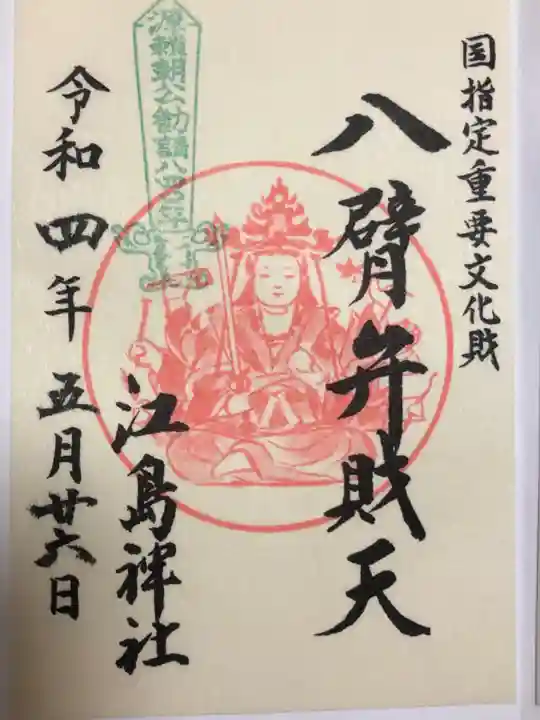 国指定重要文化財
八臂弁財天
源頼朝公勧請八四〇年
江島神社
令和四年五月廿六日